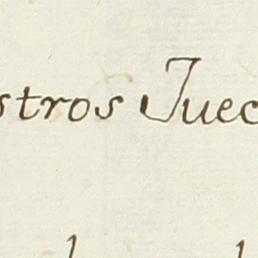 stros Juec